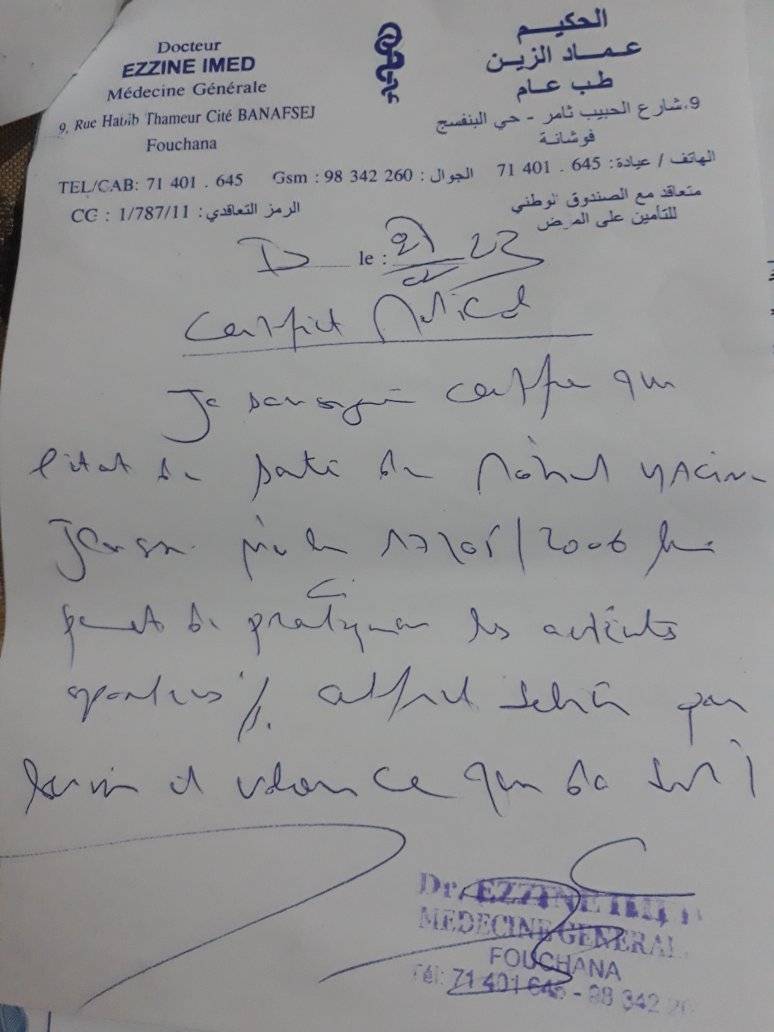 Docteur
EZZINE IMED
Médecine Générale
9, Rue Habib Thameur Cité BANAFSEJ
Fouchana
الحكيم
عماد الزين
طب عام
9، شارع الحبيب ثامر - حي البنفسج
فوشانة
TEL/CAB: 71 401 . 645 Gsm : 98 342 260 : الجوال 71 401 . 645 : الهاتف / عيادة
CC : 1/787/11 : الرمز التعاقدي
متعاقد مع الصندوق الوطني
للتأمين على المرض
le : 23
Certificat Médical
Je soussigné certifie que
l'état de santé de
né le 2006 lui
permet de pratiquer les activités
sportives certificat délivré pour
servir et valoir ce que de droit
Dr. EZZINE IMED
MEDECINE GENERAL
FOUCHANA
Tél: 71 401 645 - 98 342 26